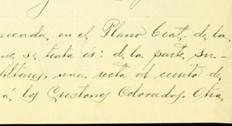 picada, en el Plano Cat. de la
ue se trata es: de la parte su-
litares, una recta al centro de
a los Crestones Colorados. Otra